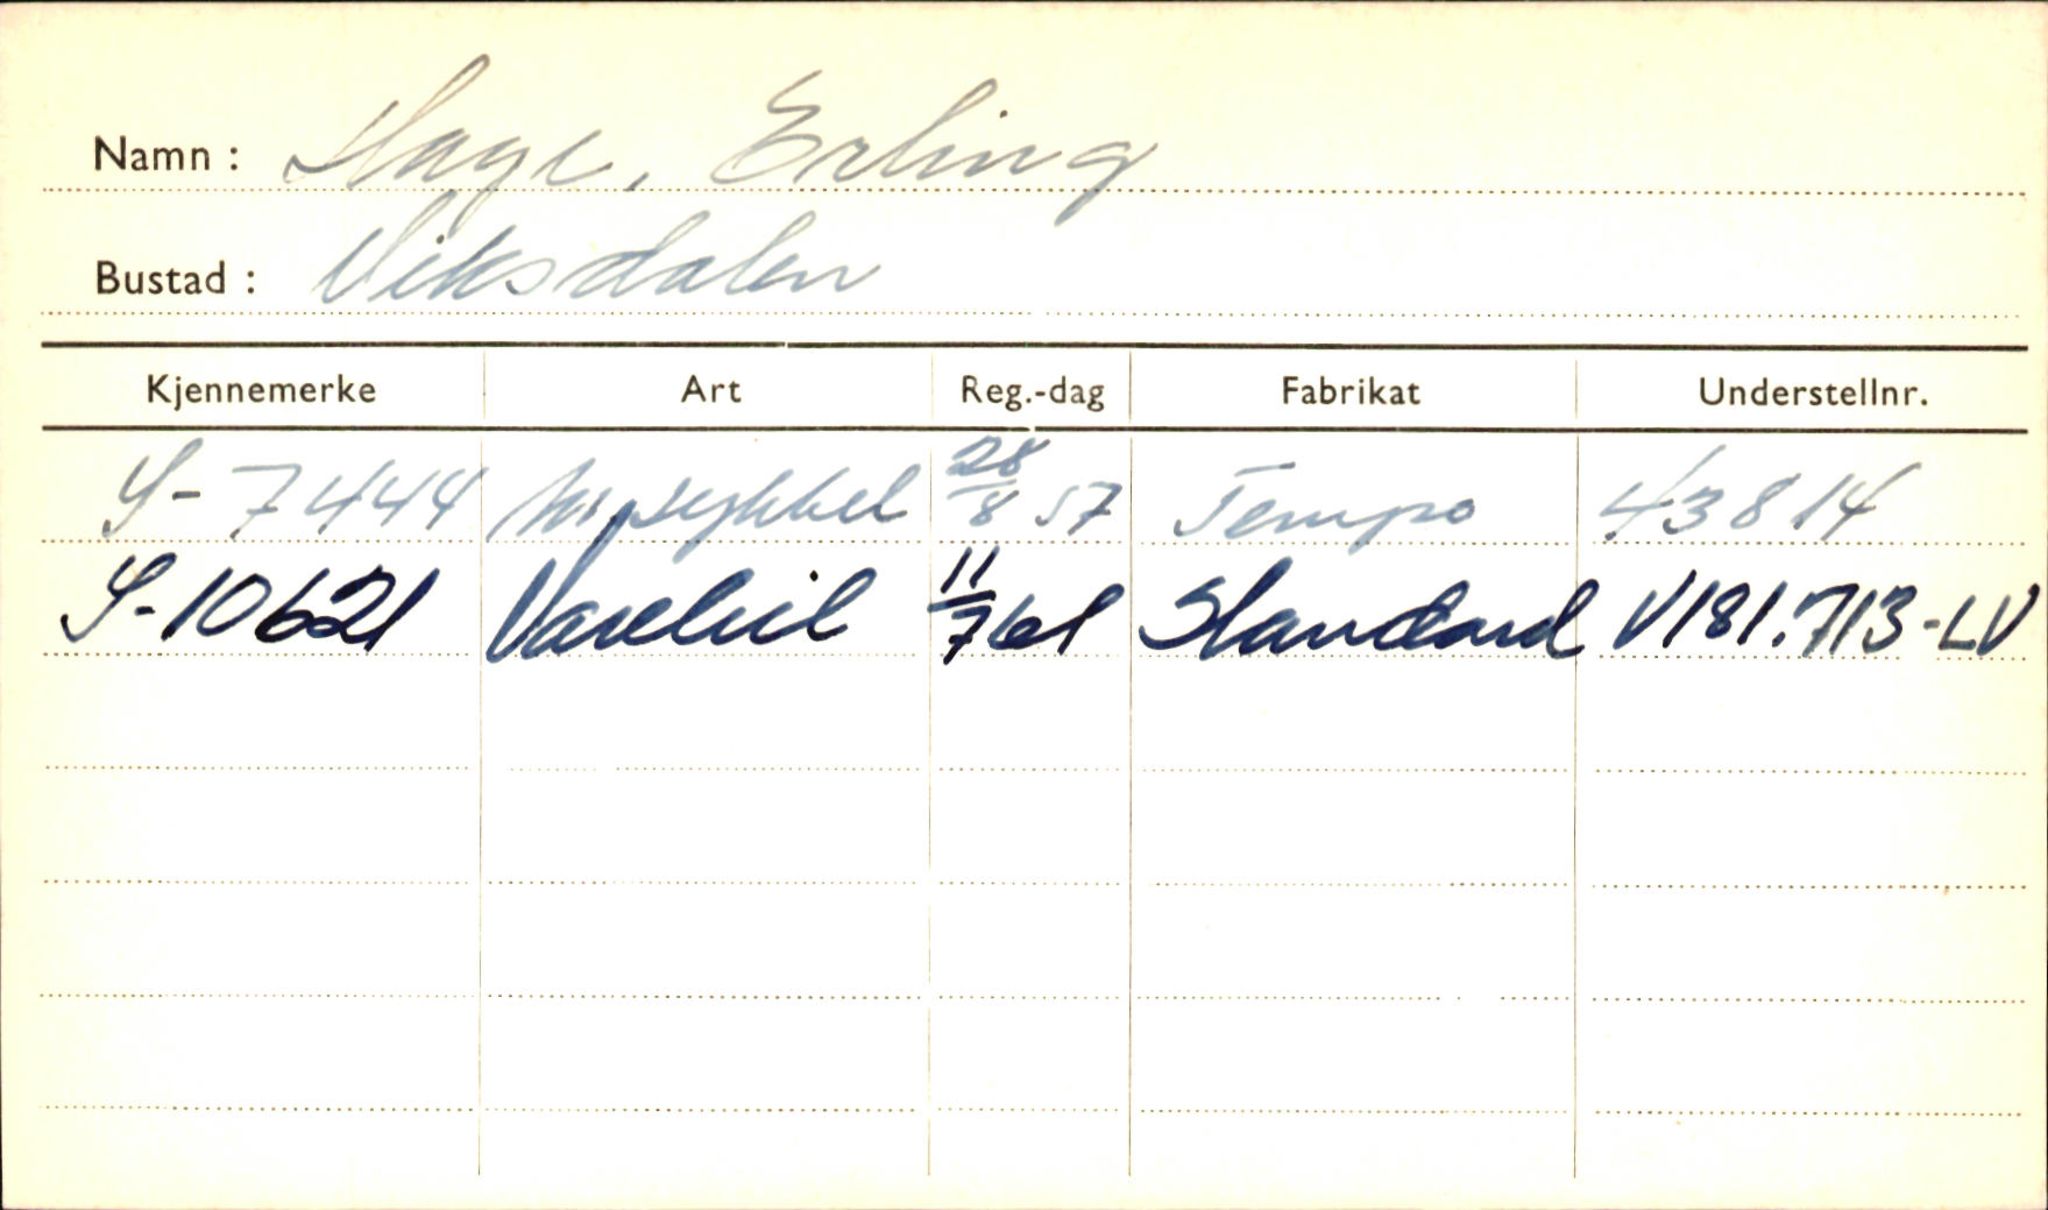 Namn : Hage, Erling
Bustad : Viksdalen
Kjennemerke Art Reg.-dag Fabrikat Understellnr.
S-7444 28/8 57 Tempo 43814
S-10621 Varebil 11/7 61 Standard V181.713-LV